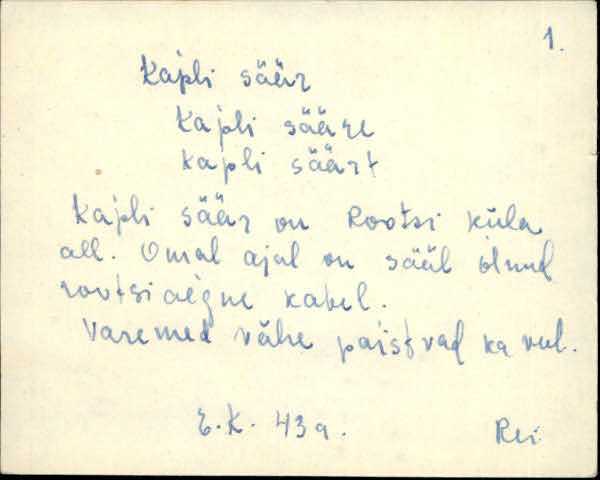 1.
Ka'pli säär
Ka'pli sääre
kapli säärt
Ka'pli säär on Rootsi küla
all. Omal ajal on sääl olnud
rootsiaegne kabel.
Varemed vähe paistvad ka veel.
E.K. 43 a. Rei